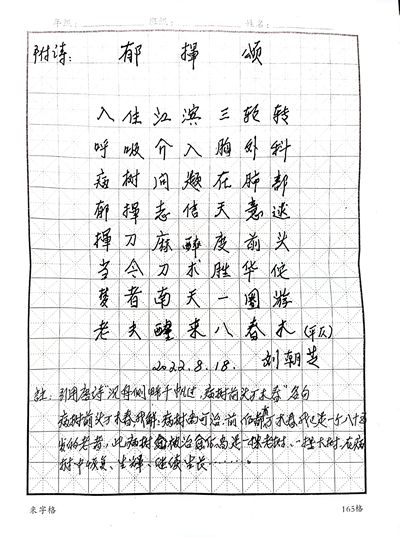 年级: 班级: 姓名:
附诗: 郁 挥 颂
入住江滨三轮转
呼吸介入胸外科
病树问题在肺部
郁挥志信天意逑
挥刀麻醉度前头
当今刀术胜华佗
梦者南天一圈游
老夫醒来八春木 (平仄)
2022.8.18. 刘朝芝
注: 引用唐诗"沉舟侧畔千帆过, 病树前头万木春"名句
病树前头万木春 病树尚可治 前 万木春 我已是一个八十多
岁的老者, 此病树 被治愈 是一棵老树、一些大树, 在病
树中恢复、生辉、继续生长………
米字格 165格